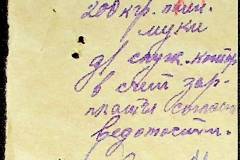 200 кгр. пшн.
муки
дл служ. контор
в счет зар-
платы согласн
ведомостим.